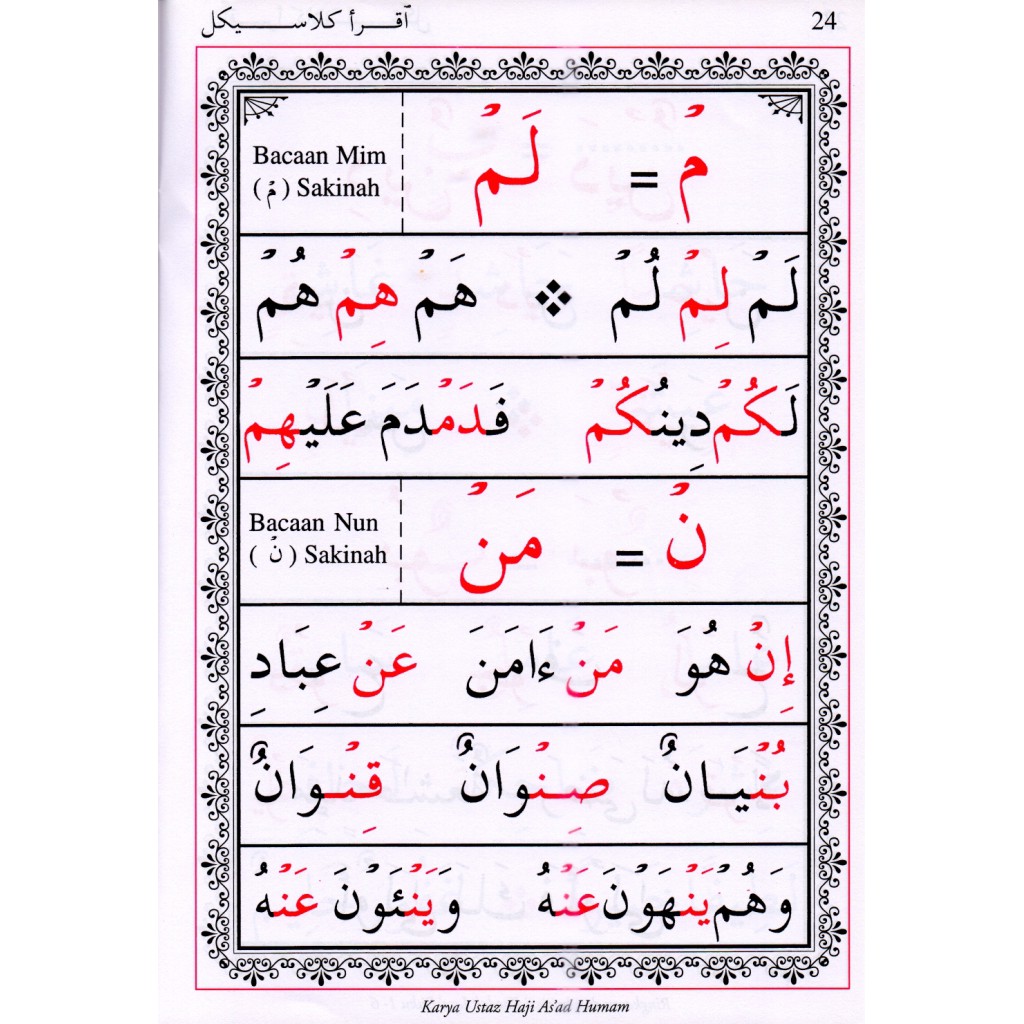 اقرأ كلاسيكل 24
مْ = لَمْ
Bacaan Mim
(مْ) Sakinah
لَمْ لِمْ لُمْ ❖ هَمْ هِمْ هُمْ
لَكُمْ دِينُكُمْ فَدَمْدَمَ عَلَيْهِمْ
نْ = مَنْ
Bacaan Nun
(نْ) Sakinah
إِنْ هُوَ مَنْ ءَامَنَ عَنْ عِبَادِ
بُنْيَانٌ صِنْوَانٌ قِنْوَانٌ
وَهُمْ يَنْهَوْنَ عَنْهُ وَيَنْئَوْنَ عَنْهُ
Karya Ustaz Haji As'ad Humam